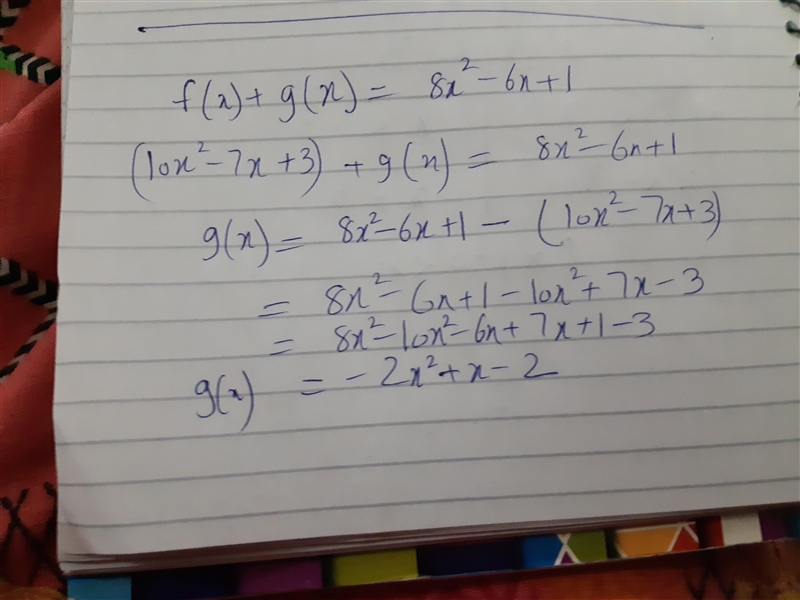 f(x) + g(x) = 8x² - 6x + 1
(10x² - 7x + 3) + g(x) = 8x² - 6x + 1
g(x) = 8x² - 6x + 1 - (10x² - 7x + 3)
= 8x² - 6x + 1 - 10x² + 7x - 3
= 8x² - 10x² - 6x + 7x + 1 - 3
g(x) = - 2x² + x - 2